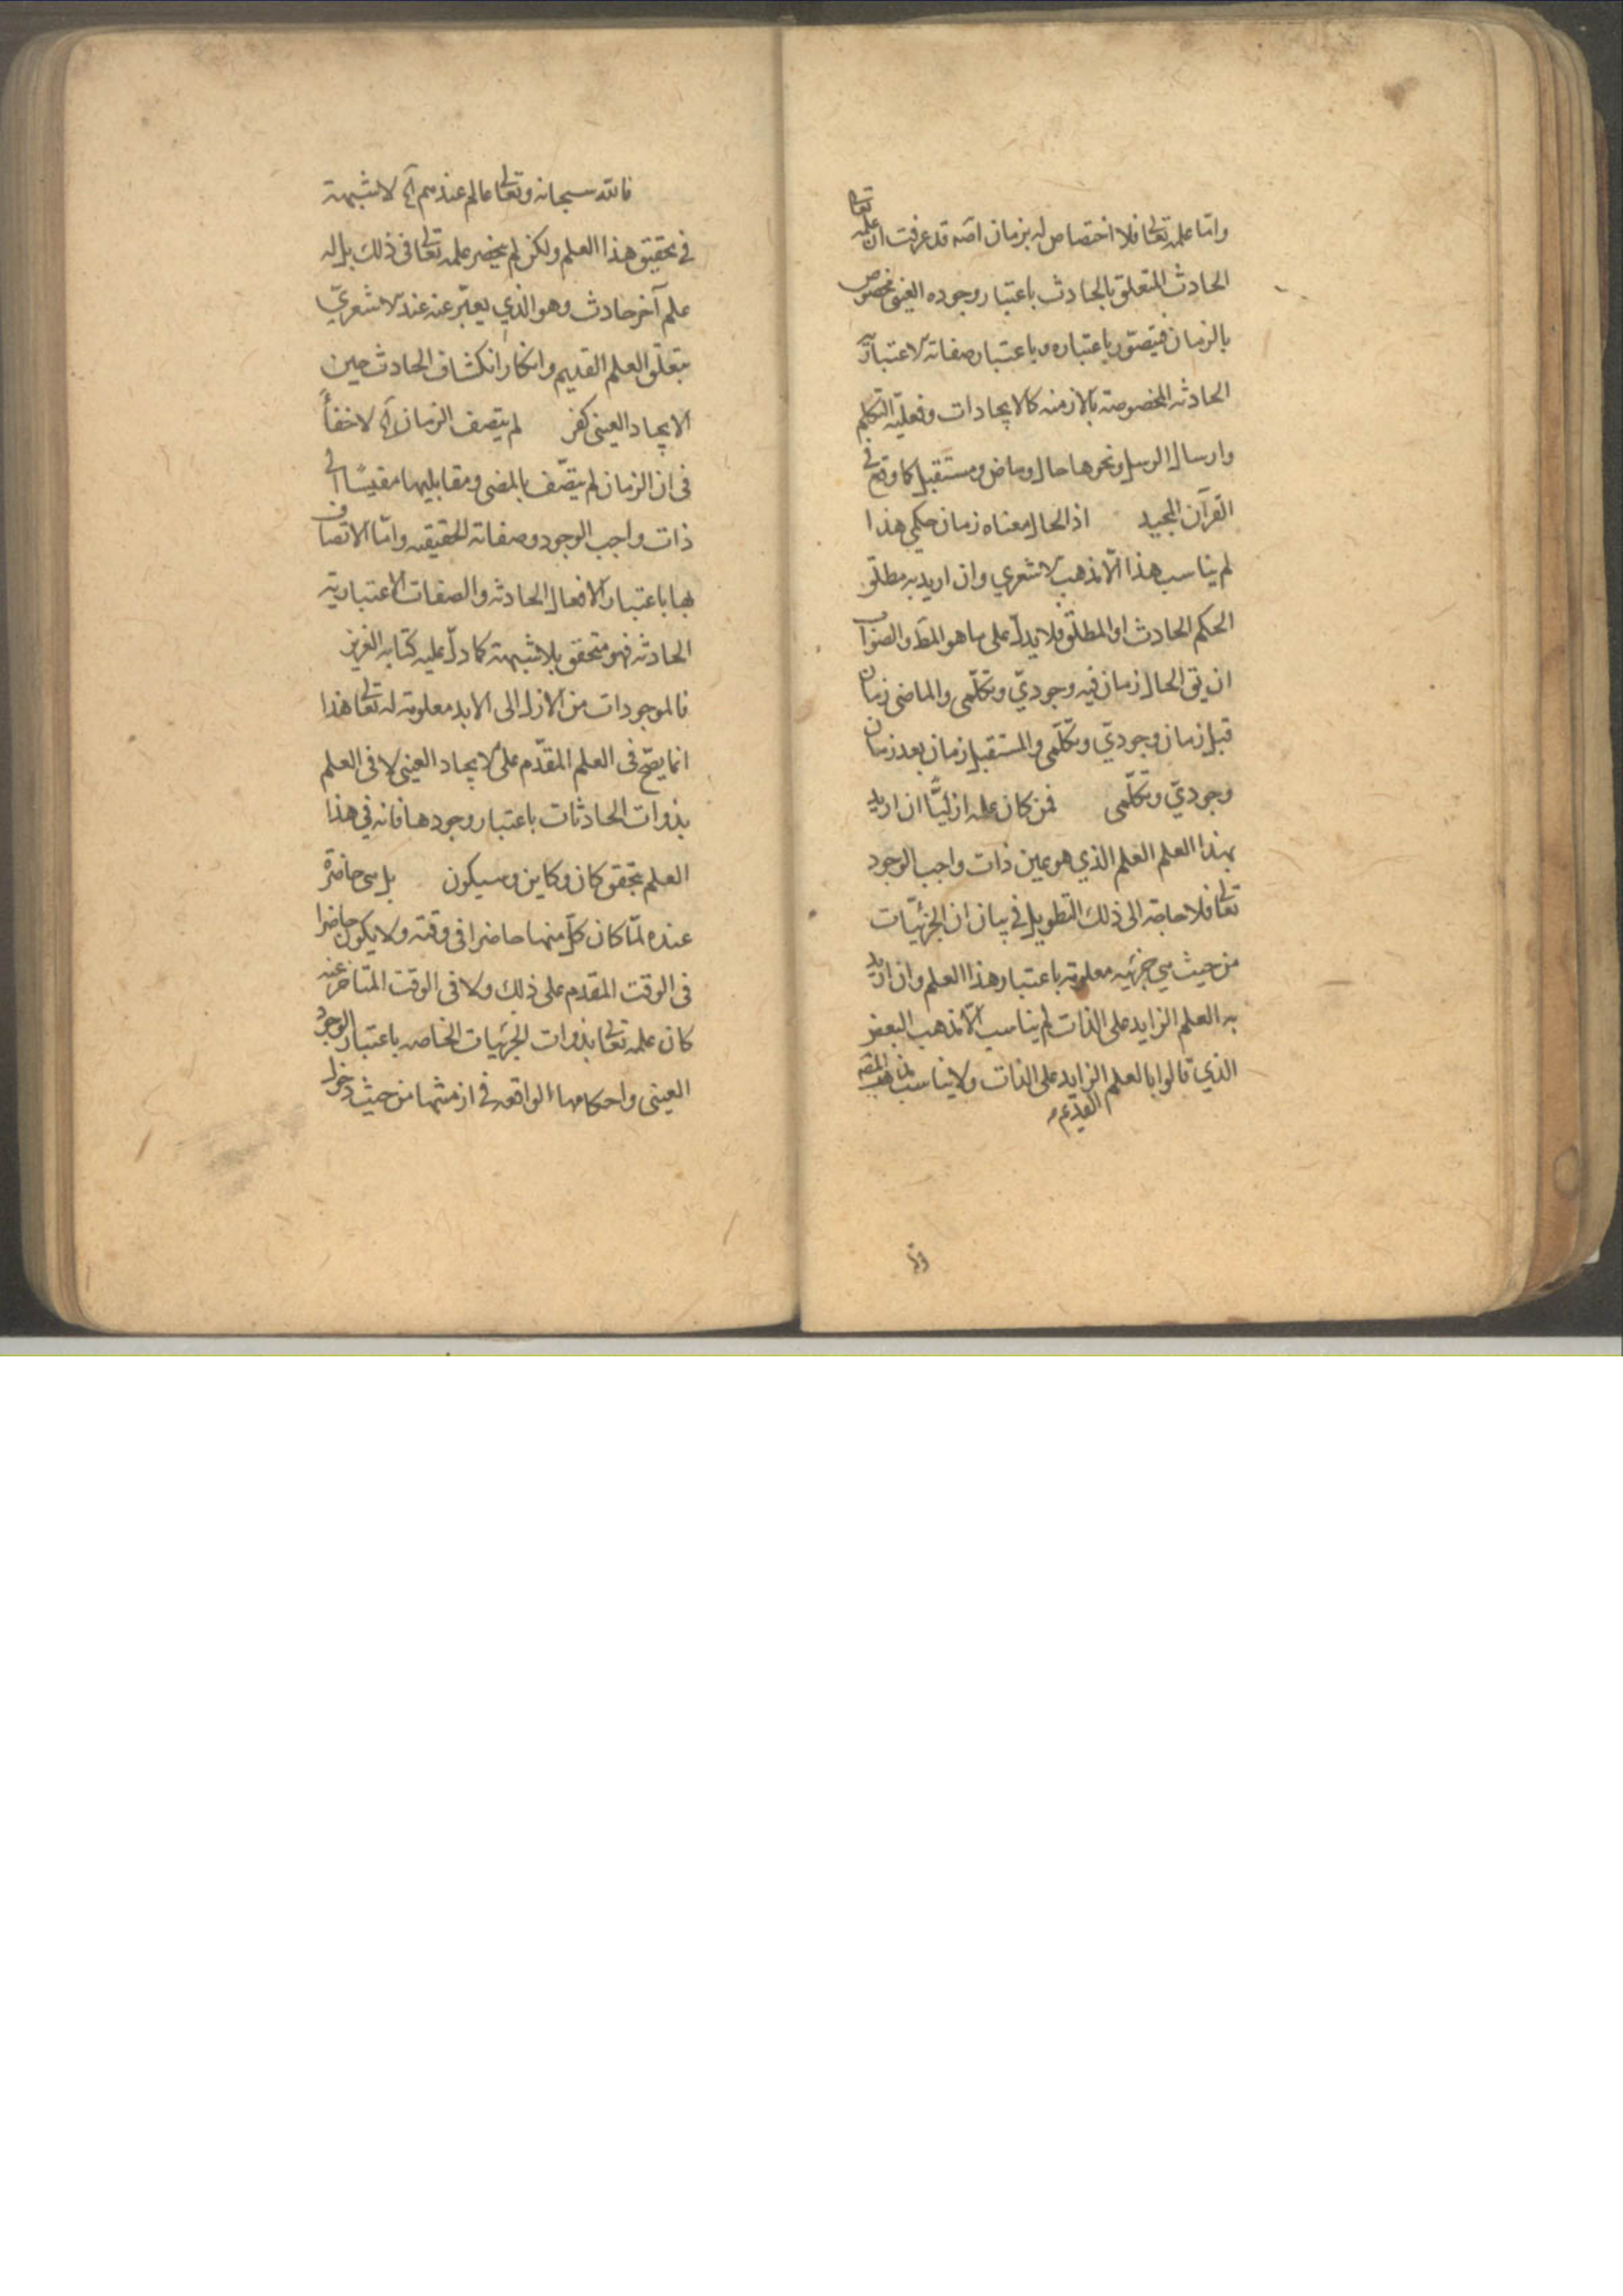 واما علمه تعالى فلا اختصاص له بزمان اصه قد عرفت ان علمه تعالى
الحادث المتعلق بالحادث باعتبار وجوده العيني مخصوص
بالزمان فيتصور باعتباره وباعتبار صفاته الاعتبارية
الحادثه المخصوصة بالازمنه كالايجادات وفعلية التكلم
وارسال الرسل ونحوها حال وماض ومستقبل كما وقع في
القرآن المجيد اذ الحال معناه زمان حكمي هذا
لم يناسب هذا الا مذهب الاشعري وان اريد به مطلق
الحكم الحادث او المطلق فلا يدل على ما هو المط والصواب
ان يق الحال زمان فيه وجودي وتكلمي والماضي زمان
قبل زمان وجودي وتكلمي والمستقبل زمان بعد زمان
وجودي وتكلمي فمن كان علمه ازليًّا ان اريد
بهذا العلم العلم الذي هو عين ذات واجب الوجود
تعالى فلا حاجة الى ذلك التطويل في بيان ان الجزئيّات
من حيث هي جزئيه معلومة باعتبار هذا العلم وان اريد
به العلم الزايد على الذات لم يناسب الا مذهب البعض
الذي قالوا بالعلم الزايد على الذات ولا يناسب
القديم
فالله سبحانه وتعالى عالم عندهم آه لا شبهة
في تحقيق هذا العلم ولكن لم يحضر علمه تعالى في ذلك بل له
علم آخر حادث وهو الذي يعبّر عنه عند الاشعريّ
بتعلق العلم القديم وانكار انكشاف الحادث حين
الايجاد العيني كفر لم يتصف الزمان آه لا خفأ
في ان الزمان لم يتصّف بالمضى ومقابليها مقيسًا الى
ذات واجب الوجود وصفاته الحقيقيه وامّا الاتصاف
بها باعتبار الافعال الحادثه والصفات الاعتبارية
الحادثه فهو متحقق بلا شبهة كما دلّ عليه كتابه العزيز
فالموجودات من الازل الى الابد معلومة له تعالى هذا
انما يصّح في العلم المقدّم على الايجاد العيني لا في العلم
بذوات الحادثات باعتبار وجودها فانه في هذا
العلم تحقق كان وكاين وسيكون بل هي حاضرة
عنده لمّا كان كلّ منها حاضرا في وقته ولا يكون حاضرا
في الوقت المقدم على ذلك ولا في الوقت المتاخر عنه
كان علمه تعالى بذوات الجزئيات الخاصه باعتبار الوجود
العيني واحكامها الواقعه في ازمنتها من حيث دخول